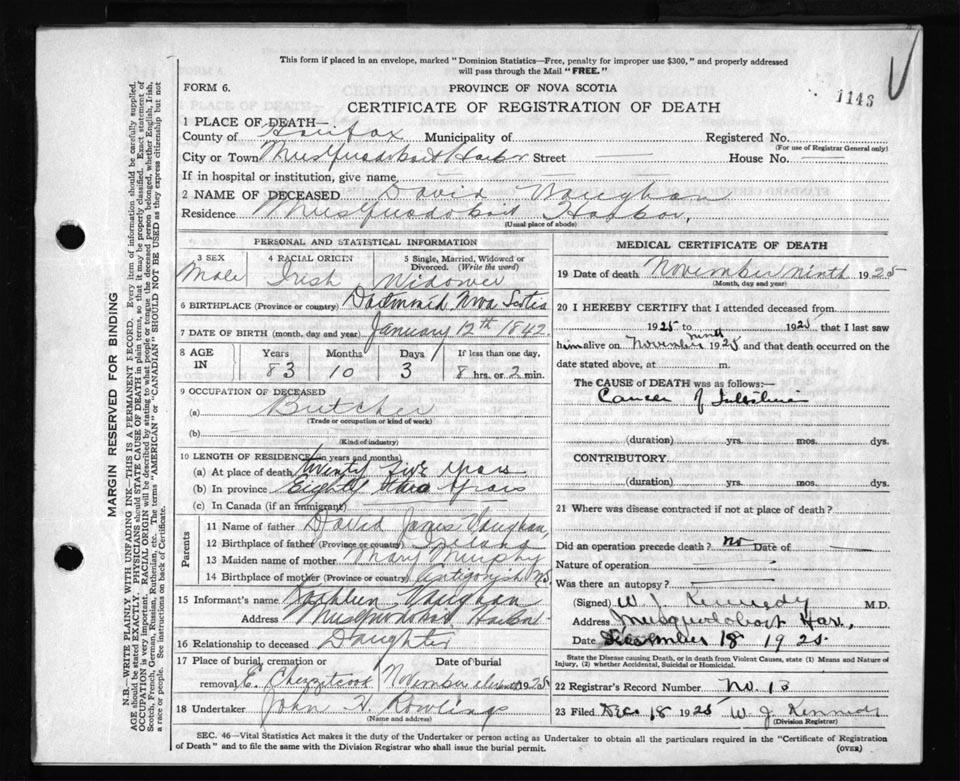 This form if placed in an envelope, marked "Dominion Statistics—Free, penalty for improper use $300," and properly addressed
will pass through the Mail "FREE."
FORM 6.
PROVINCE OF NOVA SCOTIA
1143
CERTIFICATE OF REGISTRATION OF DEATH
1 PLACE OF DEATH—
County of Halifax Municipality of
Registered No.
(For use of Registrar General only)
City or Town Musquodoboit Harbor Street
House No.
If in hospital or institution, give name
2 NAME OF DECEASED David Vaughan
Residence Musquodoboit Harbor,
(Usual place of abode)
PERSONAL AND STATISTICAL INFORMATION
3 SEX Male
4 RACIAL ORIGIN Irish
5 Single, Married, Widowed or Divorced. (Write the word) Widower
6 BIRTHPLACE (Province or country) Nova Scotia
7 DATE OF BIRTH (month, day and year) January 12th 1842.
8 AGE IN
Years 83
Months 10
Days 3
If less than one day, 8 hrs. or 2 min.
9 OCCUPATION OF DECEASED
(a) Butcher
(Trade or occupation or kind of work)
(b)
(Kind of industry)
10 LENGTH OF RESIDENCE (in years and months)
(a) At place of death Twenty five years
(b) In province Eighty three Years
(c) In Canada (if an immigrant)
Parents
11 Name of father David James Vaughan,
12 Birthplace of father (Province or country) Ireland
13 Maiden name of mother Mary Murphy
14 Birthplace of mother (Province or country) Antigonish N.S.
15 Informant's name Kathleen Vaughan
Address Musquodoboit Harbor
16 Relationship to deceased Daughter
17 Place of burial, cremation or removal E. Chezzetcook
Date of burial November eleventh 1925
18 Undertaker John H. Rowlings
(Name and address)
MEDICAL CERTIFICATE OF DEATH
19 Date of death November ninth 1925
(Month, day and year)
20 I HEREBY CERTIFY that I attended deceased from
1925 to 1925 that I last saw
him alive on November ninth 1925 and that death occurred on the
date stated above, at m.
The CAUSE of DEATH was as follows:—
Cancer of Intestine
(duration) yrs. mos. dys.
CONTRIBUTORY
(duration) yrs. mos. dys.
21 Where was disease contracted if not at place of death?
Did an operation precede death? no Date of
Nature of operation
Was there an autopsy?
(Signed) W. J. Kennedy M.D.
Address Musquodoboit Har.,
Date December 18 1925
State the Disease causing Death, or in death from Violent Causes, state (1) Means and Nature of
Injury, (2) whether Accidental, Suicidal or Homicidal.
22 Registrar's Record Number No. 13
23 Filed Dec 18 1925 W. J. Kennedy
(Division Registrar)
SEC. 46—Vital Statistics Act makes it the duty of the Undertaker or person acting as Undertaker to obtain all the particulars required in the "Certificate of Registration
of Death" and to file the same with the Division Registrar who shall issue the burial permit.
(OVER)
MARGIN RESERVED FOR BINDING
N.B.—WRITE PLAINLY WITH UNFADING INK—THIS IS A PERMANENT RECORD. Every item of information should be carefully supplied.
AGE should be stated EXACTLY. PHYSICIANS should STATE CAUSE OF DEATH in plain terms, so that it may be properly classified. Exact statement of
OCCUPATION is very important. RACIAL ORIGIN will be described by stating to what people or tongue the deceased person belonged, whether English, Irish,
Scotch, French, German, Russian, Ruthenian, etc. The terms "AMERICAN" or "CANADIAN" SHOULD NOT BE USED as they express citizenship but not
a race or people. See instructions on back of Certificate.